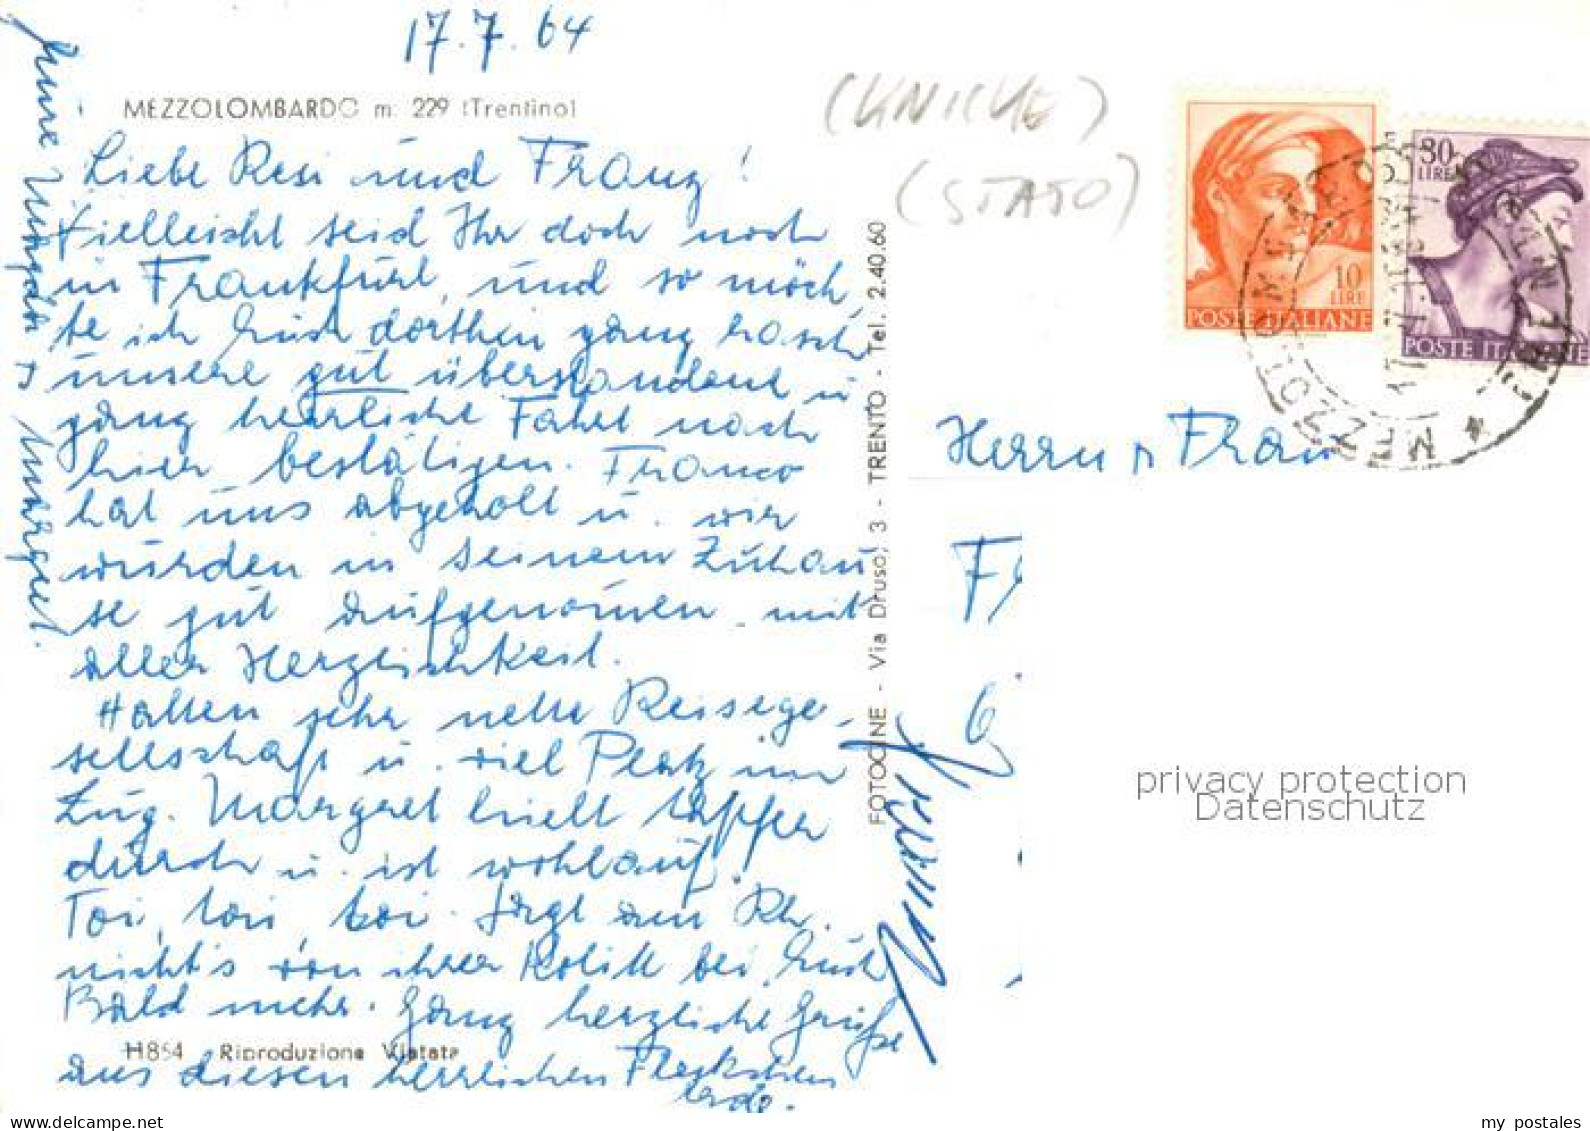 17.7.64
MEZZOLOMBARDO m. 229 (Trentino)
Liebe Resi und Franz!
Vielleicht seid Ihr doch noch
in Frankfurt, und so möch
te ich Euch dorthin ganz rasch
unsere gut überstandene u
ganz herrliche Fahrt nach
hier bestätigen. Franco
hat uns abgeholt u. wir
wurden in seinem Zuhau
se gut aufgenomen mit
aller Herzlichkeit.
Hatten sehr nette Reisege-
sellschaft u. viel Platz im
Zug. Margret hielt tapfer
durch u. ist wohlauf!
Toi, toi, toi. Sagt am Rh.
nicht's von ihrer Kolik bei Euch
Bald mehr. Ganz herzliche Grüße
aus diesem herrlichen Fleckchen
Erde.
H854 Riproduzione Vietata
Margret
FOTOCINE - Via Druso, 3 - TRENTO - Tel. 2.40.60
(KNICKE)
(STATO)
10
LIRE
POSTE ITALIANE
30
LIRE
POSTE ITALIANE
MEZZOLOMBARDO
Herrn u Frau
privacy protection
Datenschutz
my postales